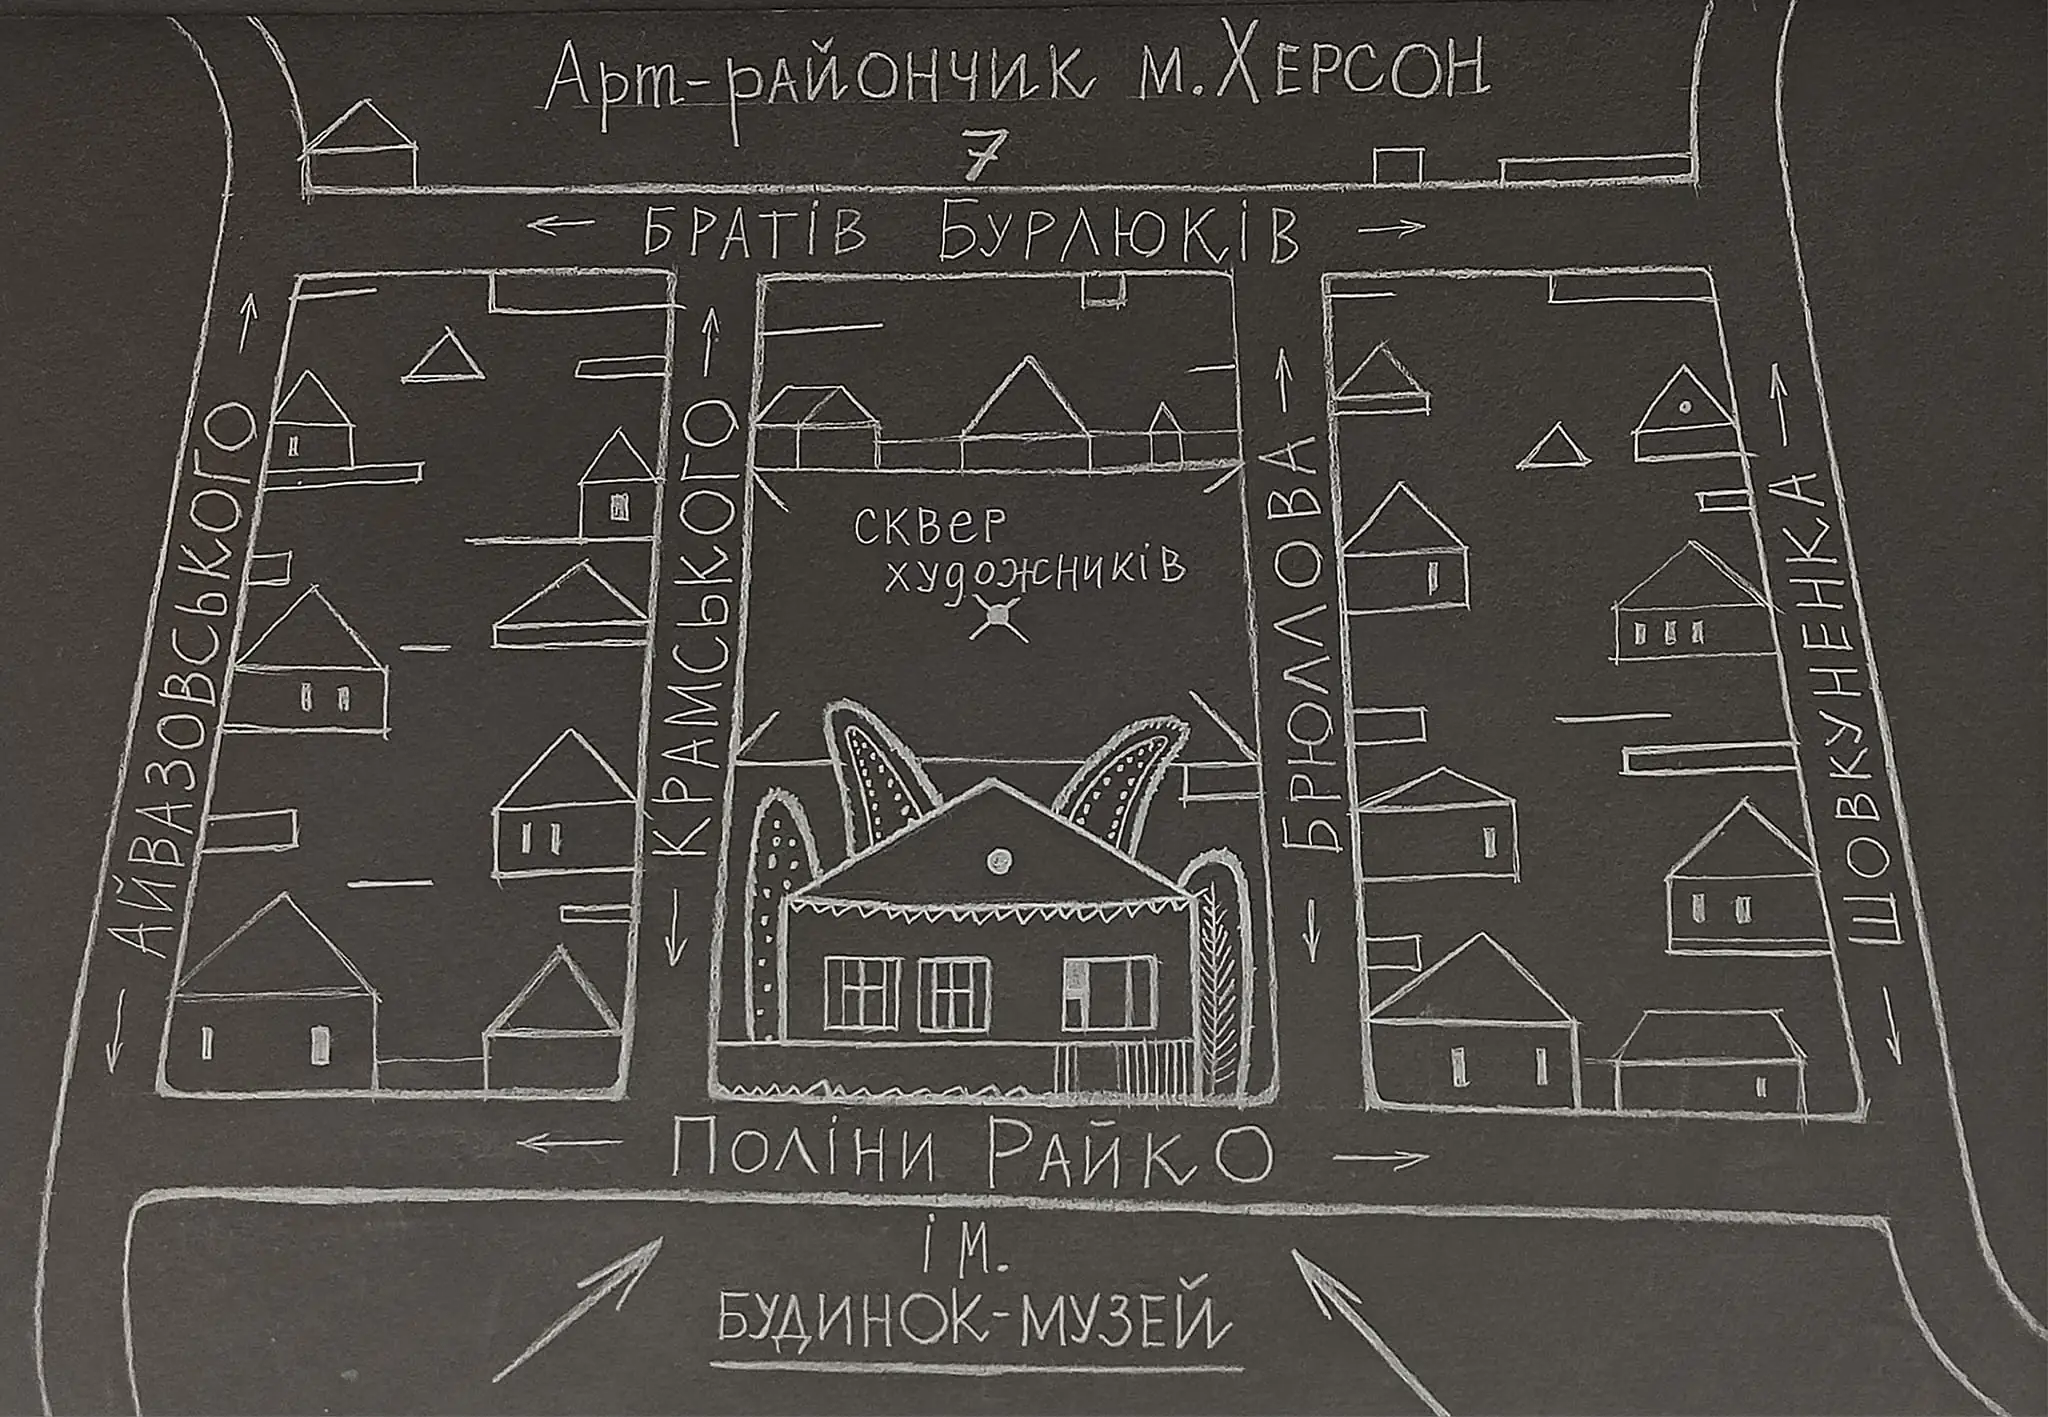 Арт-райончик м.Херсон
7
← Братів Бурлюків →
← Айвазовського →
← Крамського →
сквер
художників
← Брюллова →
← Шовкуненка →
← Поліни Райко →
ім.
будинок-музей